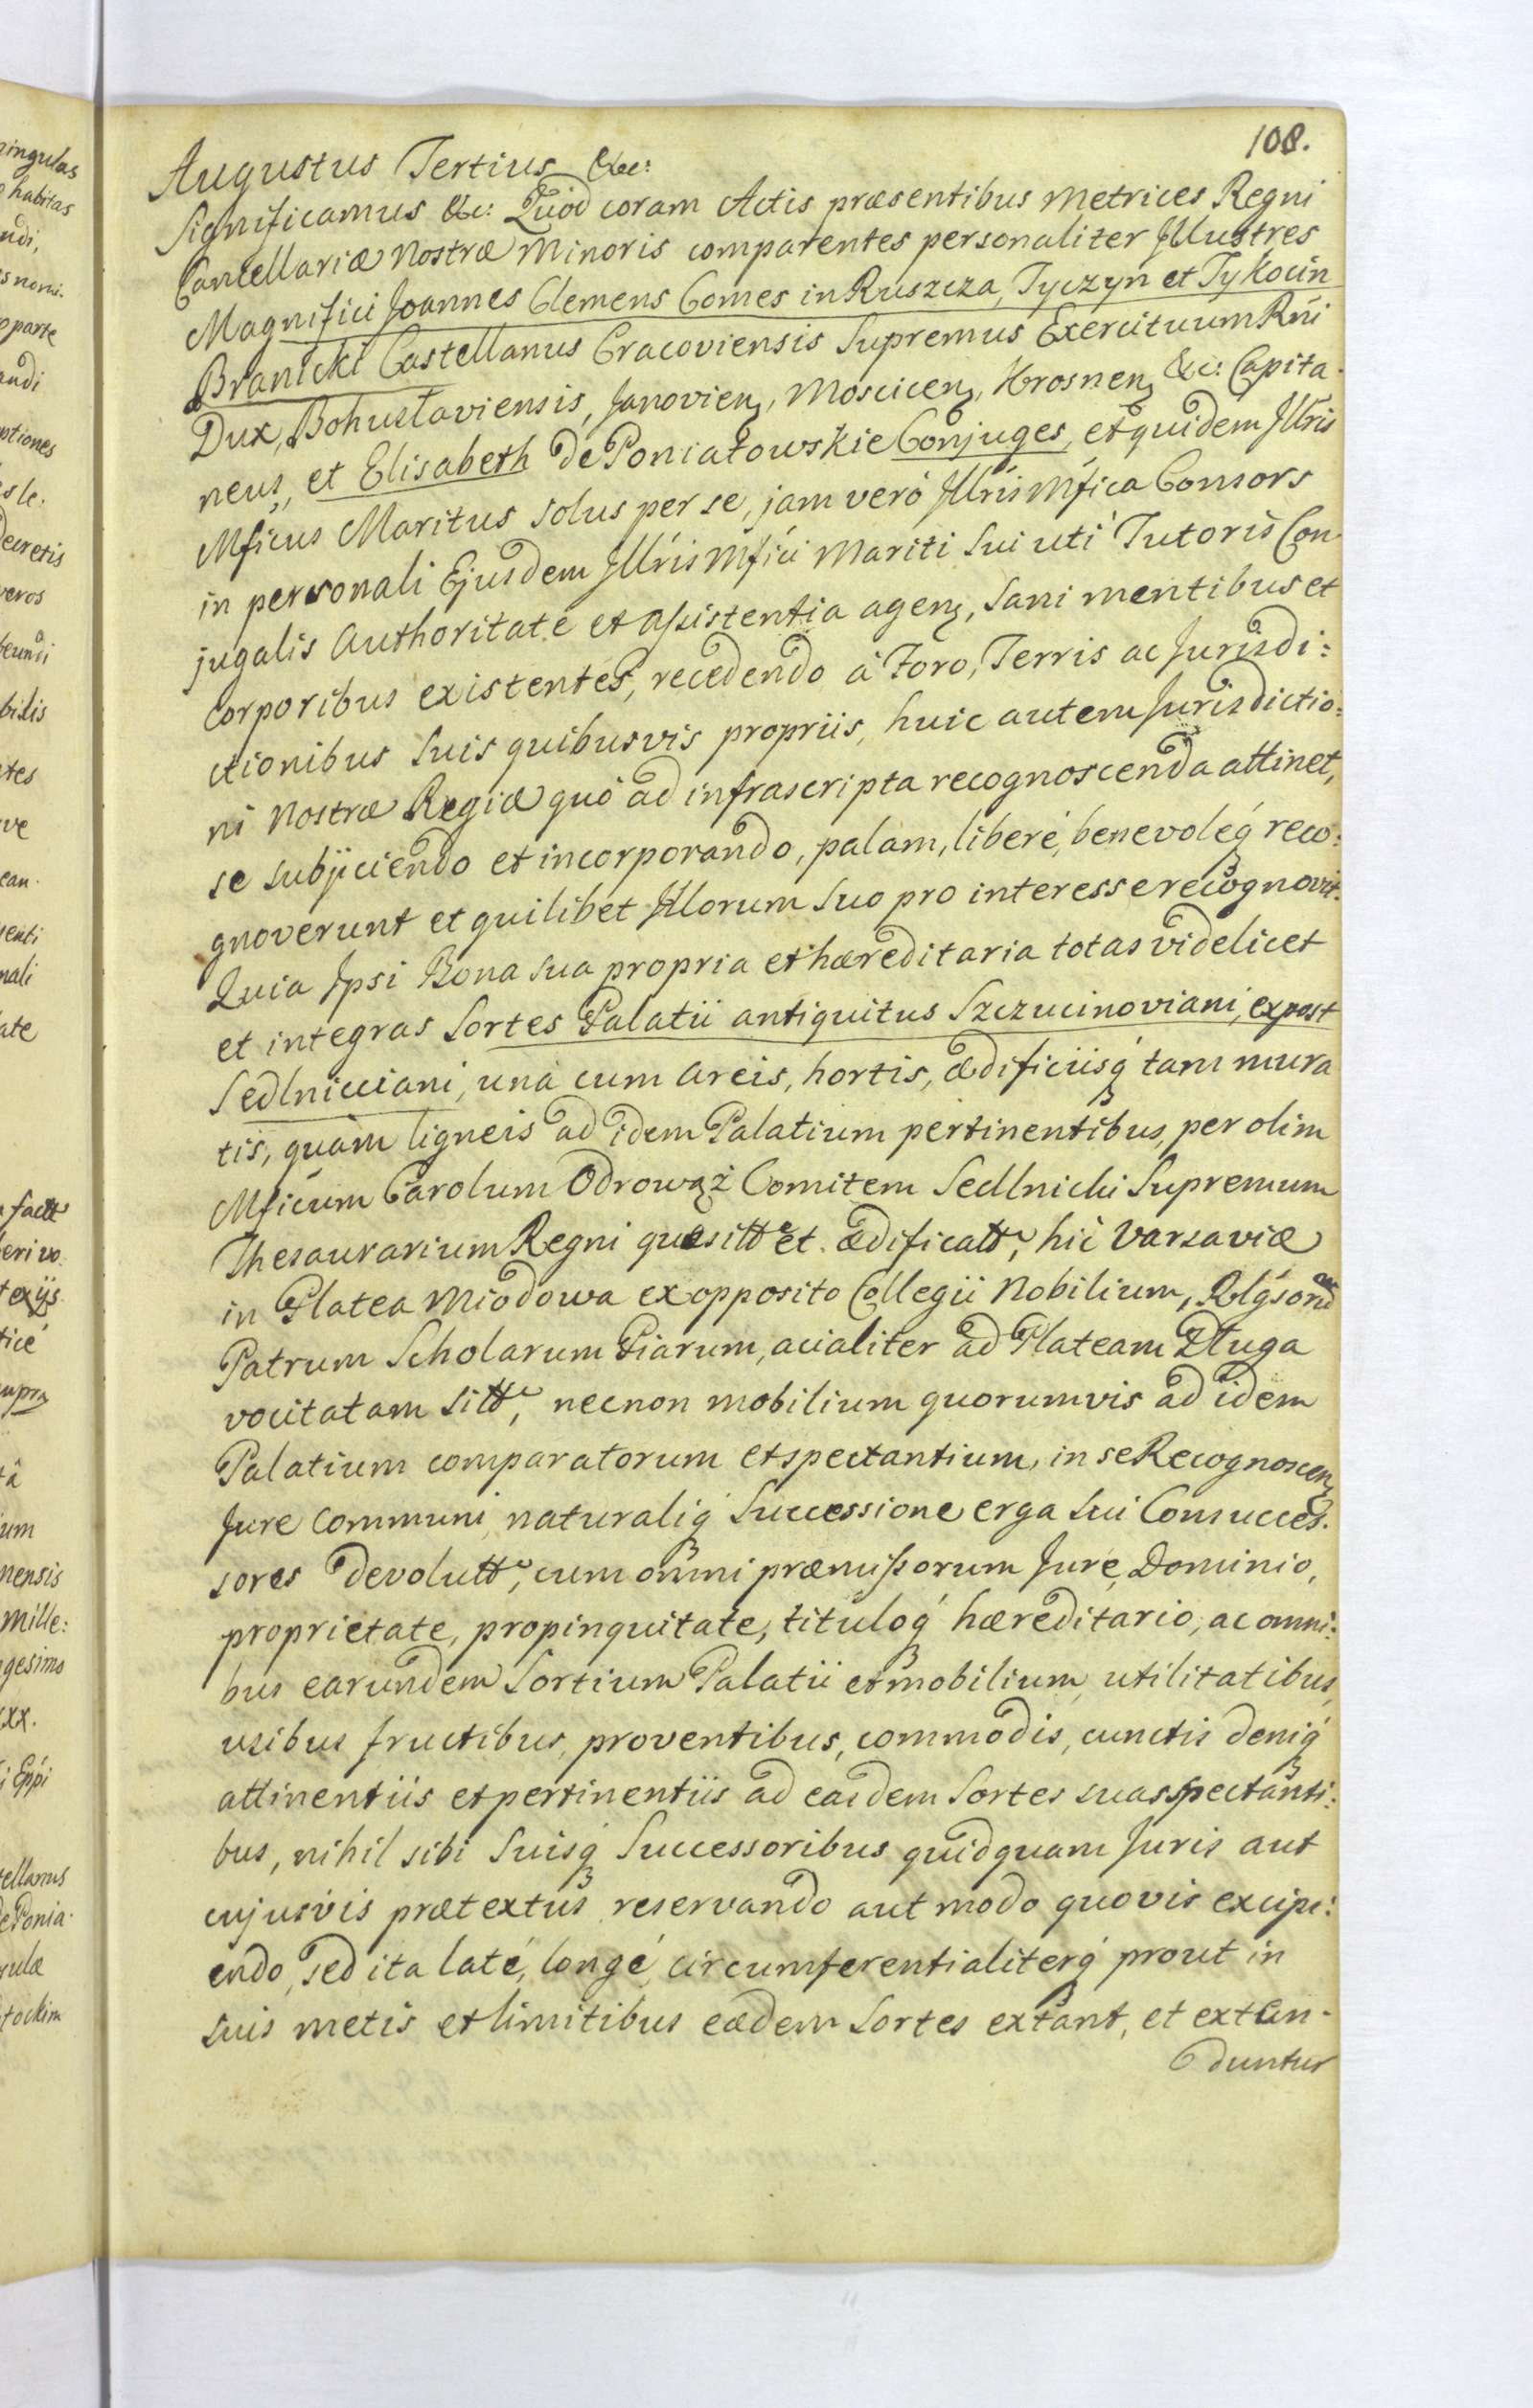 108.
Augustus Tertius &c:
Significamus &c: Quod coram Actis præsentibus Metrices Regni
Cancellariæ Nostræ Minoris comparentes personaliter Jllustres
Magnifici Joannes Clemens Comes in Ruszcza, Tyczyn et Tykocin
Branicki Castellanus Cracoviensis Supremus Exercituum Rñi
Dux, Bohuslaviensis, Janovien, Moscicen, Krosnen &c: Capita-
neus, et Elisabeth de Poniatowskie Conjuges, et quidem Jllris
Mficus Maritus solus per se, jam verò Jllris Mfica Consors
in personali Ejusdem Jllris Mfici Mariti Sui uti Tutoris Con
jugalis Authoritate et assistentia agen, Sani mentibus et
corporibus existentes, recedendo à Foro, Terris ac Jurisdi:
ctionibus Suis quibusvis propriis, huic autem Jurisdictio:
ni Nostræ Regiæ quò ad infrascripta recognoscenda attinet,
se subjiciendo et incorporando, palam, liberè, benevoleq́ reco:
gnoverunt et quilibet Jllorum Suo pro interesse recognovit.
Quia Jpsi Bona sua propria et hæreditaria totas videlicet
et integras Sortes Palatii antiquitus Szczucinoviani, ex post
Sedlnicciani, unà cum areis, hortis, ædificiisq́ tam mura
tis, quàm ligneis ad idem Palatium pertinentibus, per olim
Mficum Carolum Odrowąż Comitem Sedlnicki Supremum
Thesaurarium Regni quæsitt et ædificatt, hìc Varsaviæ
in Platea Miodowa ex opposito Collegii Nobilium,
Patrum Scholarum Piarum, acialiter ad Plateam Długa
vocitatam sitt, necnon mobilium quorumvis ad idem
Palatium comparatorum et spectantium, in se Recognoscen
Jure communi naturaliq́ Successione erga Sui Consucces-
sores devolutt, cum omni præmissorum Jure, Dominio,
proprietate, propinquitate, tituloq́ hæreditario, ac omni:
bus earundem Sortium Palatii et mobilium, utilitatibus,
usibus fructibus, proventibus, commodis, cunctis deniq́
attinentiis et pertinentiis ad easdem Sortes suas spectanti:
bus, nihil sibi Suisq́ Successoribus quidquam Juris aut
cujusvis prætextus reservando aut modo quovis excipi:
endo, sed ita latè, longè, circumferentialiterq́ prout in
suis metis et limitibus eædem Sortes extant, et exten-
duntur